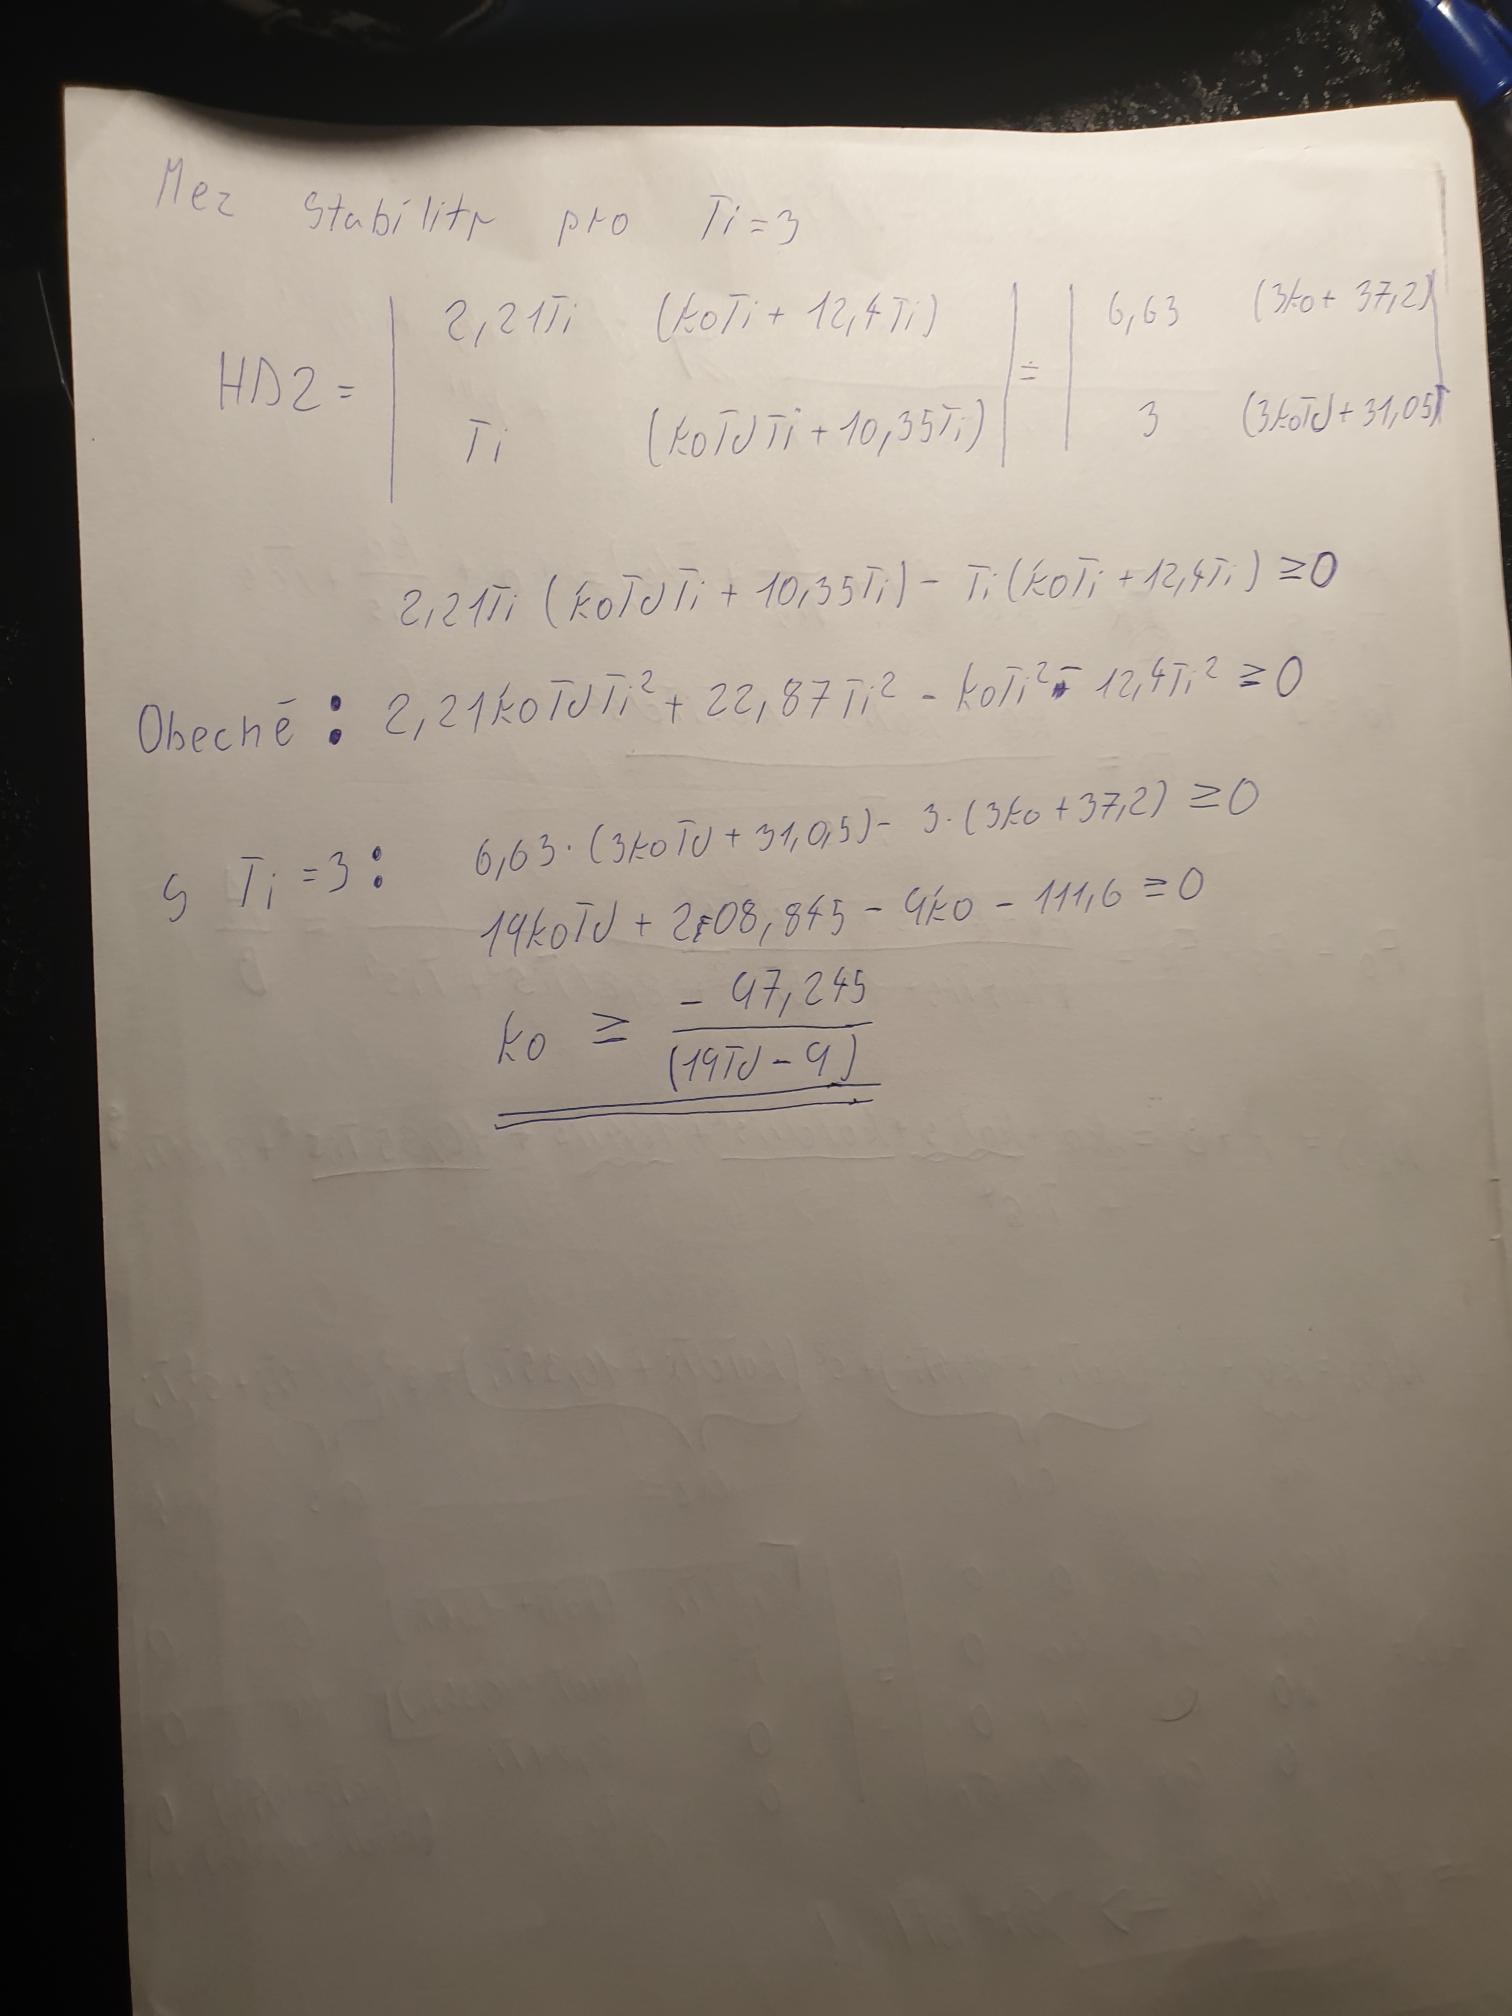 Mez stability pro Ti = 3
HD2 = | 2,21Ti (koTi + 12,4Ti) | = | 6,63 (3ko + 37,2) |
| Ti (koTdTi + 10,35Ti) | | 3 (3koTd + 31,05) |
2,21Ti (koTdTi + 10,35Ti) - Ti (koTi + 12,4Ti) ≥ 0
Obecně : 2,21koTdTi² + 22,87Ti² - koTi² - 12,4Ti² ≥ 0
S Ti = 3 : 6,63 · (3koTd + 31,0,5) - 3 · (3ko + 37,2) ≥ 0
19koTd + 208,845 - 9ko - 111,6 ≥ 0
ko ≥ - 97,245
(19Td - 9)